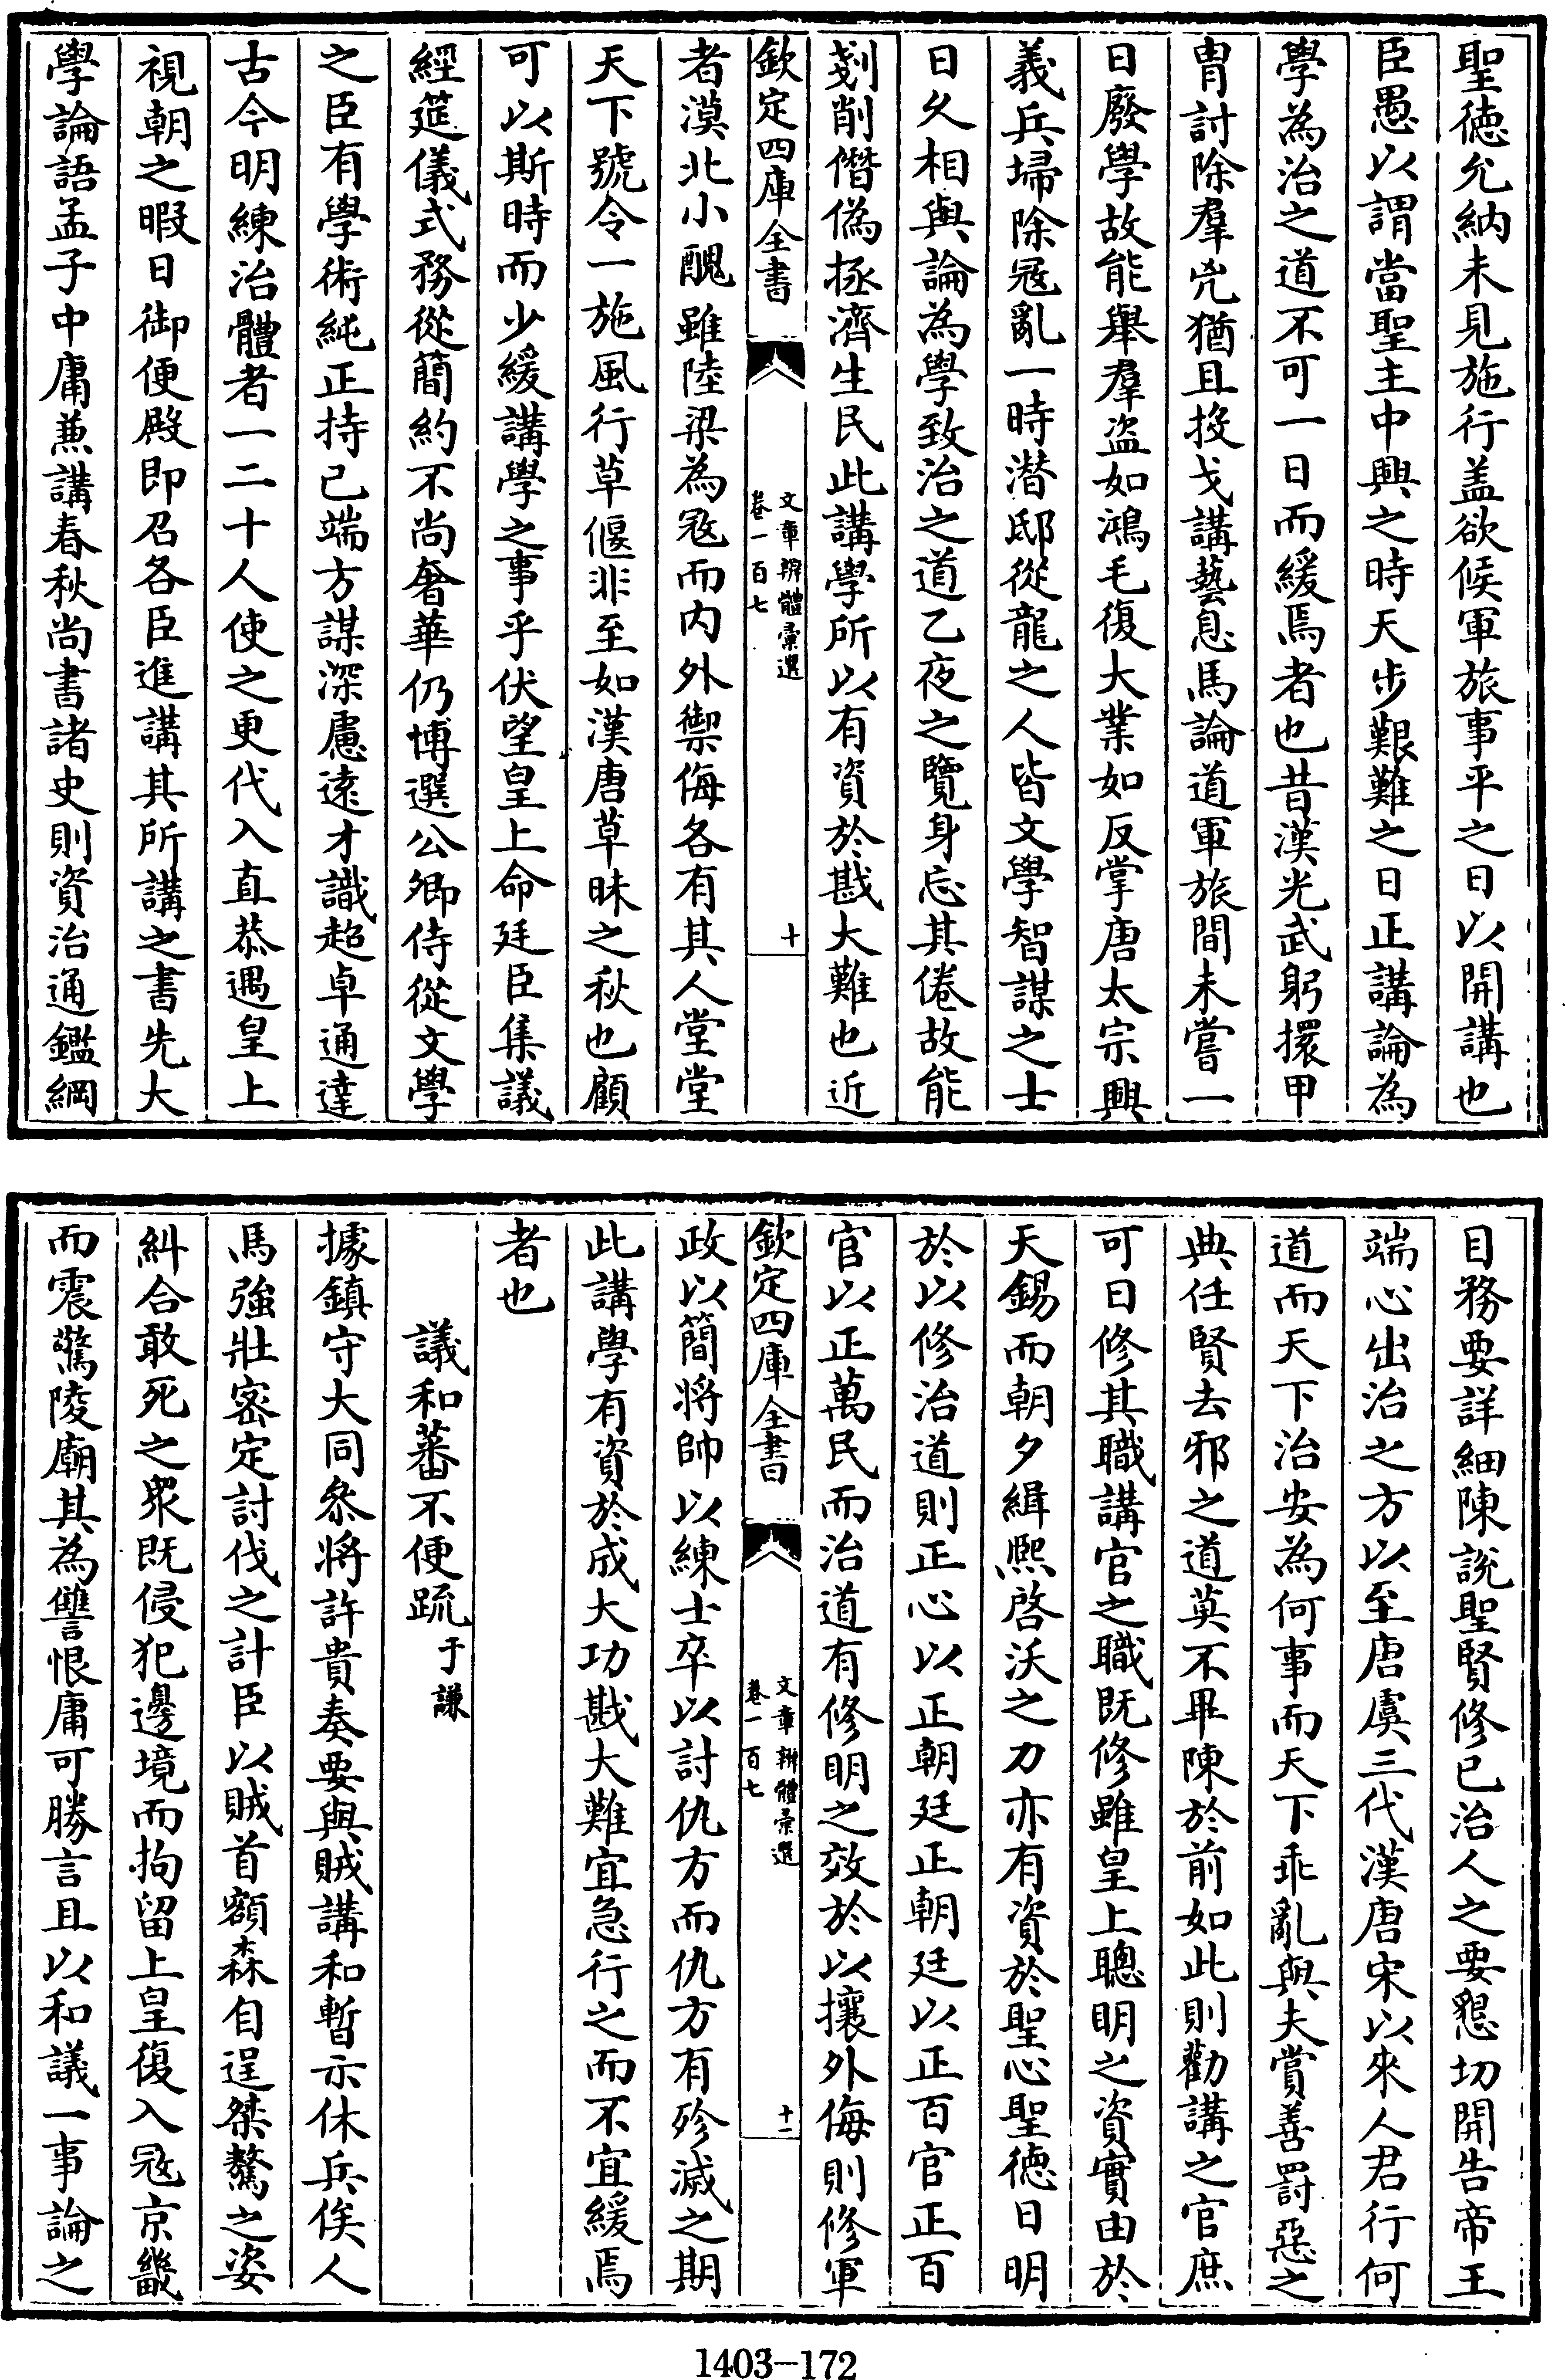 聖德允納未見施行盖欲候軍旅事平之日以開講也
臣愚以謂當聖主中興之時天步艱難之日正講論為
學為治之道不可一日而緩焉者也昔漢光武躬擐甲
胄討除羣兇猶且投戈講藝息馬論道軍旅間未嘗一
日廢學故能舉羣盗如鴻毛復大業如反掌唐太宗興
義兵埽除冦亂一時潛邸從龍之人皆文學智謀之士
日夂相與論為學致治之道乙夜之覽身忘其倦故能
剗削僭偽拯濟生民此講學所以有資於戡大難也近
欽定四庫全書
文章辨體彚選
卷一百七
十
者漠北小醜雖陸梁為冦而内外禦侮各有其人堂堂
天下號令一施風行草偃非至如漢唐草昧之秋也顧
可以斯時而少緩講學之事乎伏望皇上命廷臣集議
經筵儀式務從簡約不尚奢華仍博選公卿侍從文學
之臣有學術純正持己端方謀深慮遠才識超卓通達
古今明練治體者一二十人使之更代入直恭遇皇上
視朝之暇日御便殿即召各臣進講其所講之書先大
學論語孟子中庸兼講春秋尚書諸史則資治通鑑綱
目務要詳細陳説聖賢修已治人之要懇切開告帝王
端心出治之方以至唐虞三代漢唐宋以來人君行何
道而天下治安為何事而天下乖亂與夫賞善罰惡之
典任賢去邪之道莫不畢陳於前如此則勸講之官庶
可日修其職講官之職既修雖皇上聰明之資實由於
天錫而朝夕緝熙啓沃之力亦有資於聖心聖德日明
於以修治道則正心以正朝廷正朝廷以正百官正百
官以正萬民而治道有修明之效於以攘外侮則修軍
欽定四庫全書
文章辨體彚選
卷一百七
十一
政以簡將帥以練士卒以討仇方而仇方有殄滅之期
此講學有資於成大功戡大難宜急行之而不宜緩焉
者也
議和蕃不便疏于謙
據鎮守大同叅將許貴奏要與賊講和暫示休兵俟人
馬強壯密定討伐之計臣以賊首額森自逞桀驁之姿
糾合敢死之衆既侵犯邊境而拘留上皇復入冦京畿
而震驚陵廟其為讐恨庸可勝言且以和議一事論之
1403-172